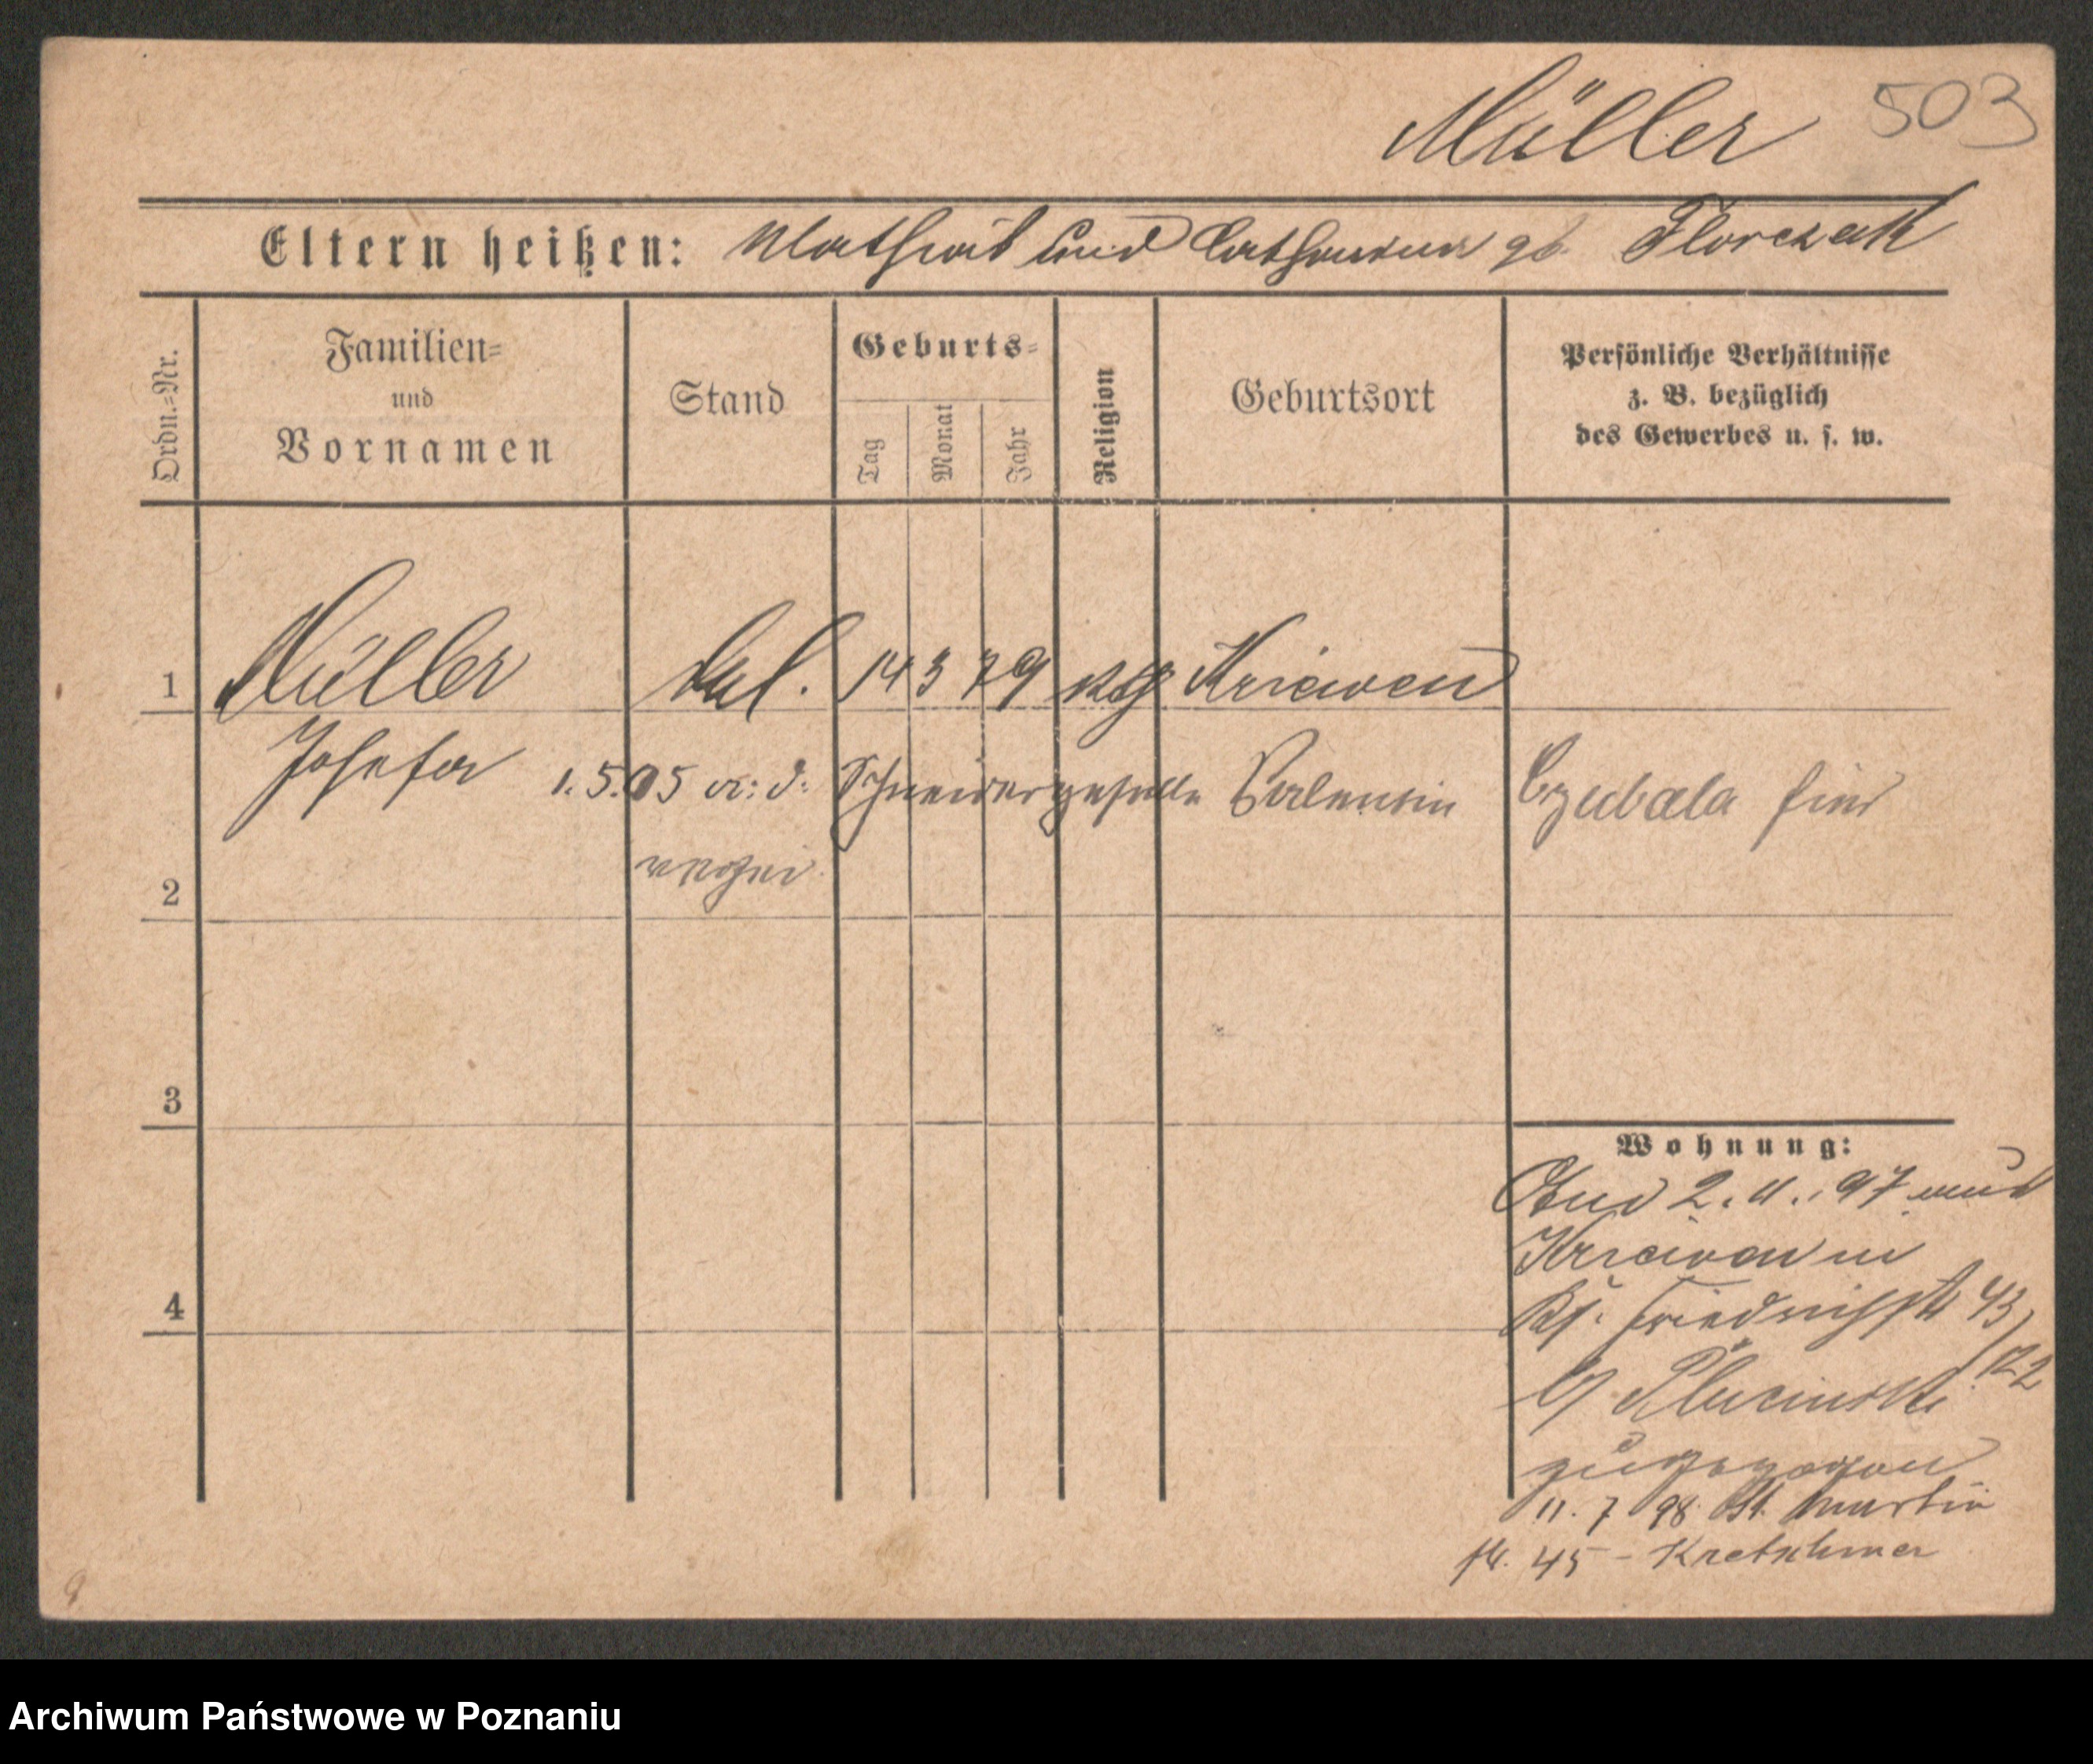 Müller 503
Eltern heißen: Mathias und Catharina gb. Florczak
Ordn.=Nr.
Familien=
und
Vornamen
Stand
Geburts=
Tag
Monat
Jahr
Religion
Geburtsort
Persönliche Verhältnisse
z. B. bezüglich
des Gewerbes u. s. w.
1 Müller led. 14 3 79 kth Kriewen
Josefa 1.5.05 a: d: Schneidergeselle Valentin Czubala hier
2
3
4
Wohnung:
2. 11. 97 aus
Kriewen in
43
Plucinski 122
zugezogen
11. 7 98 St. Martin
str. 45 - Kretschmer
9
Archiwum Państwowe w Poznaniu